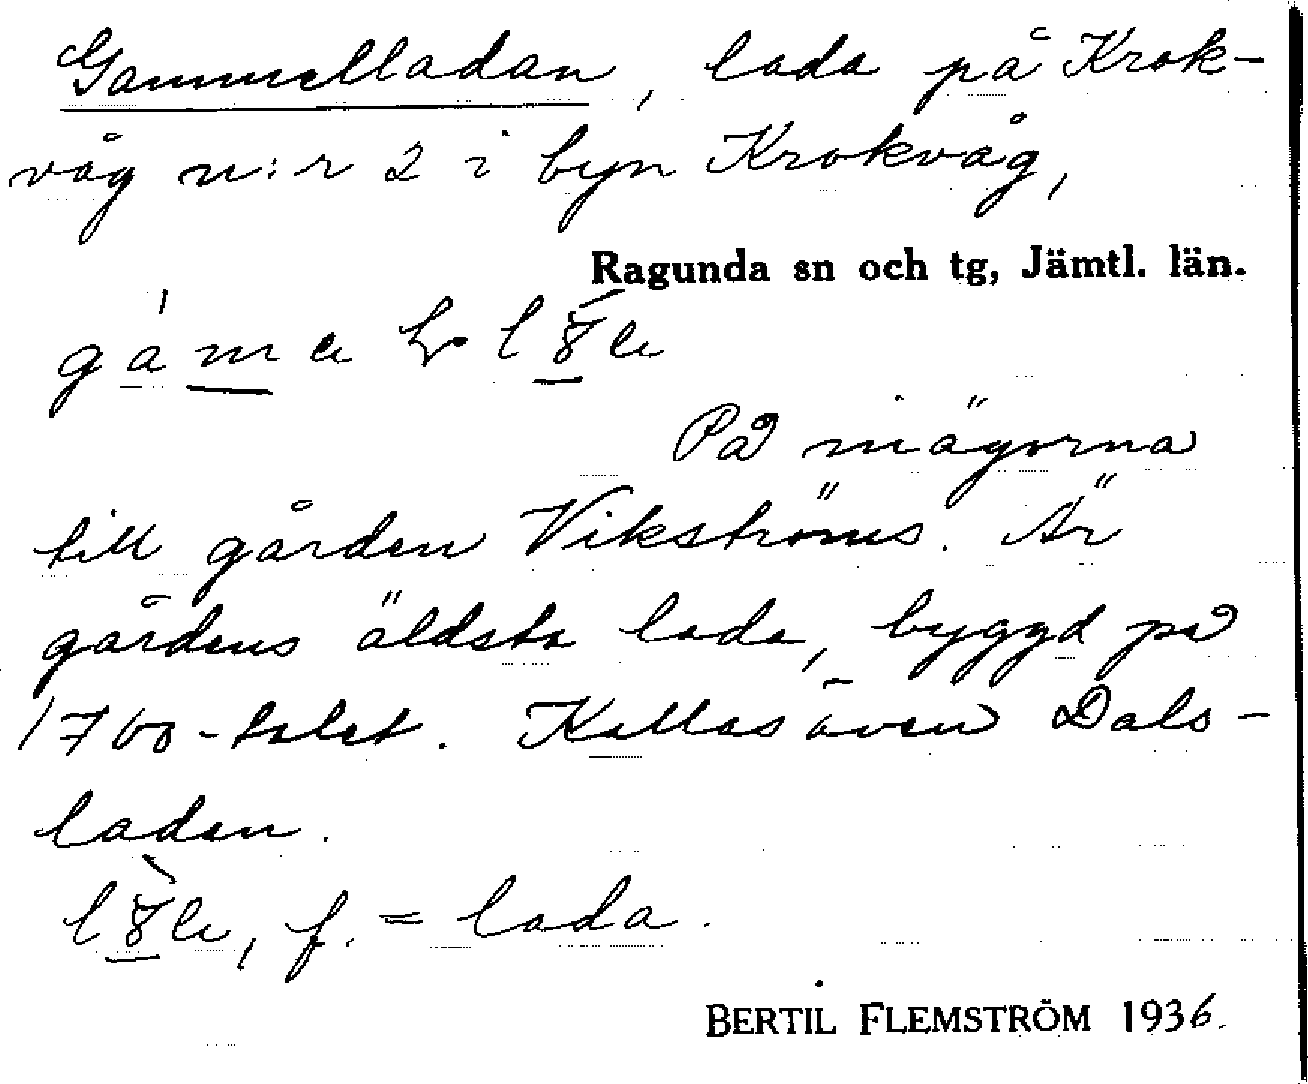 Gammelladan, lada på Krok-
våg n:r 2 i byn Krokvåg,
Ragunda sn och tg, Jämtl. län.
På inägorna
till gården Vikströms. Är
gårdens äldsta lada, byggd på
1700-talet. Kallas även Dals-
ladan.
f. = lada.
BERTIL FLEMSTRÖM 1936.